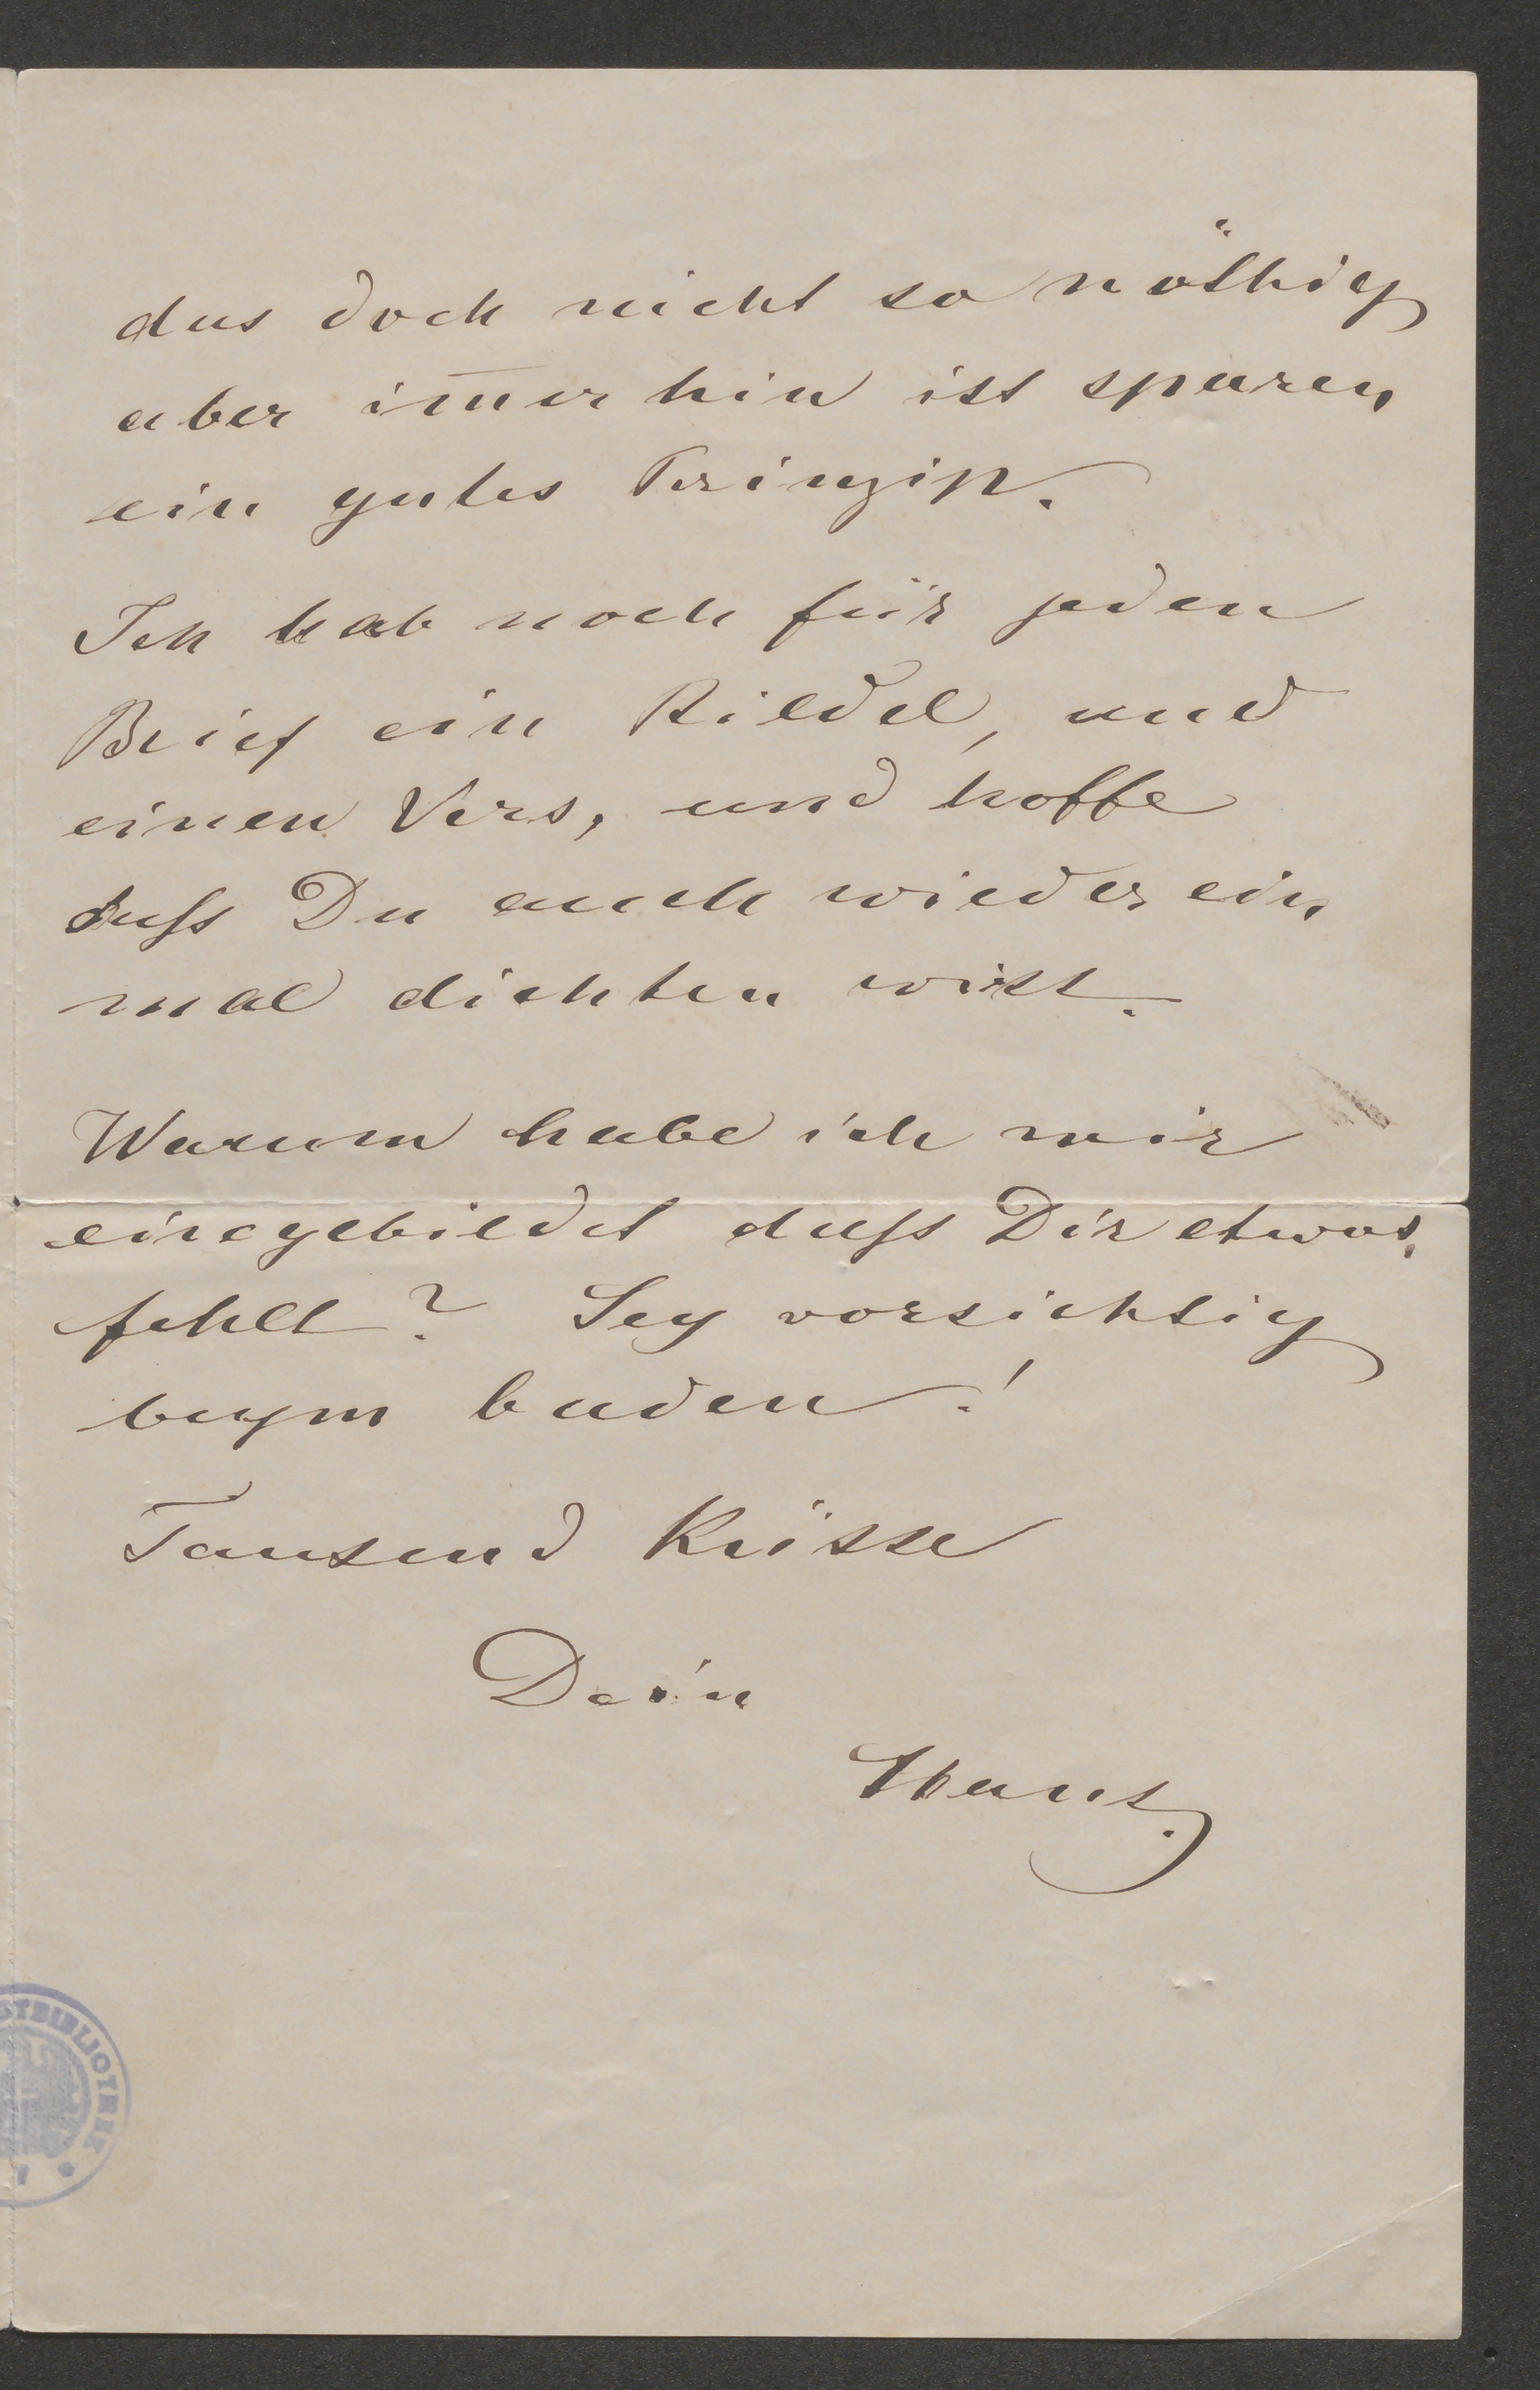 das doch nicht so nöthig
aber im̅er hin ist sparen
ein gutes Prinzip.
Ich hab noch für jeden
Brief ein Bildel, und
einen Vers, und hoffe
daſs Du auch wieder ein
mal dichten wirst.
Warum habe ich mir
eingebildet daſs Dir etwas
fehlt? Sey vorsichtig
beym baden!
Tausend Küsse
Dein
Hans.